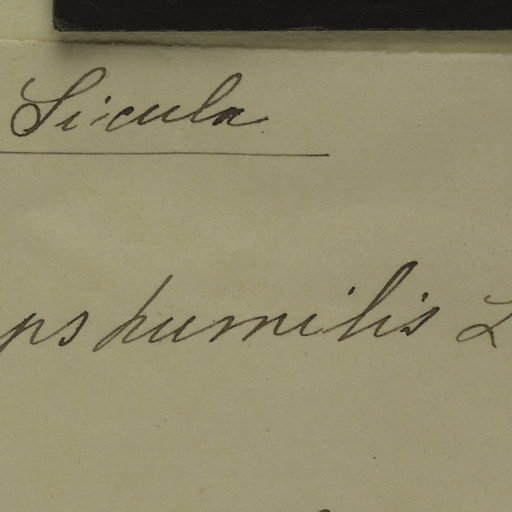 Sicula
ps humilis L